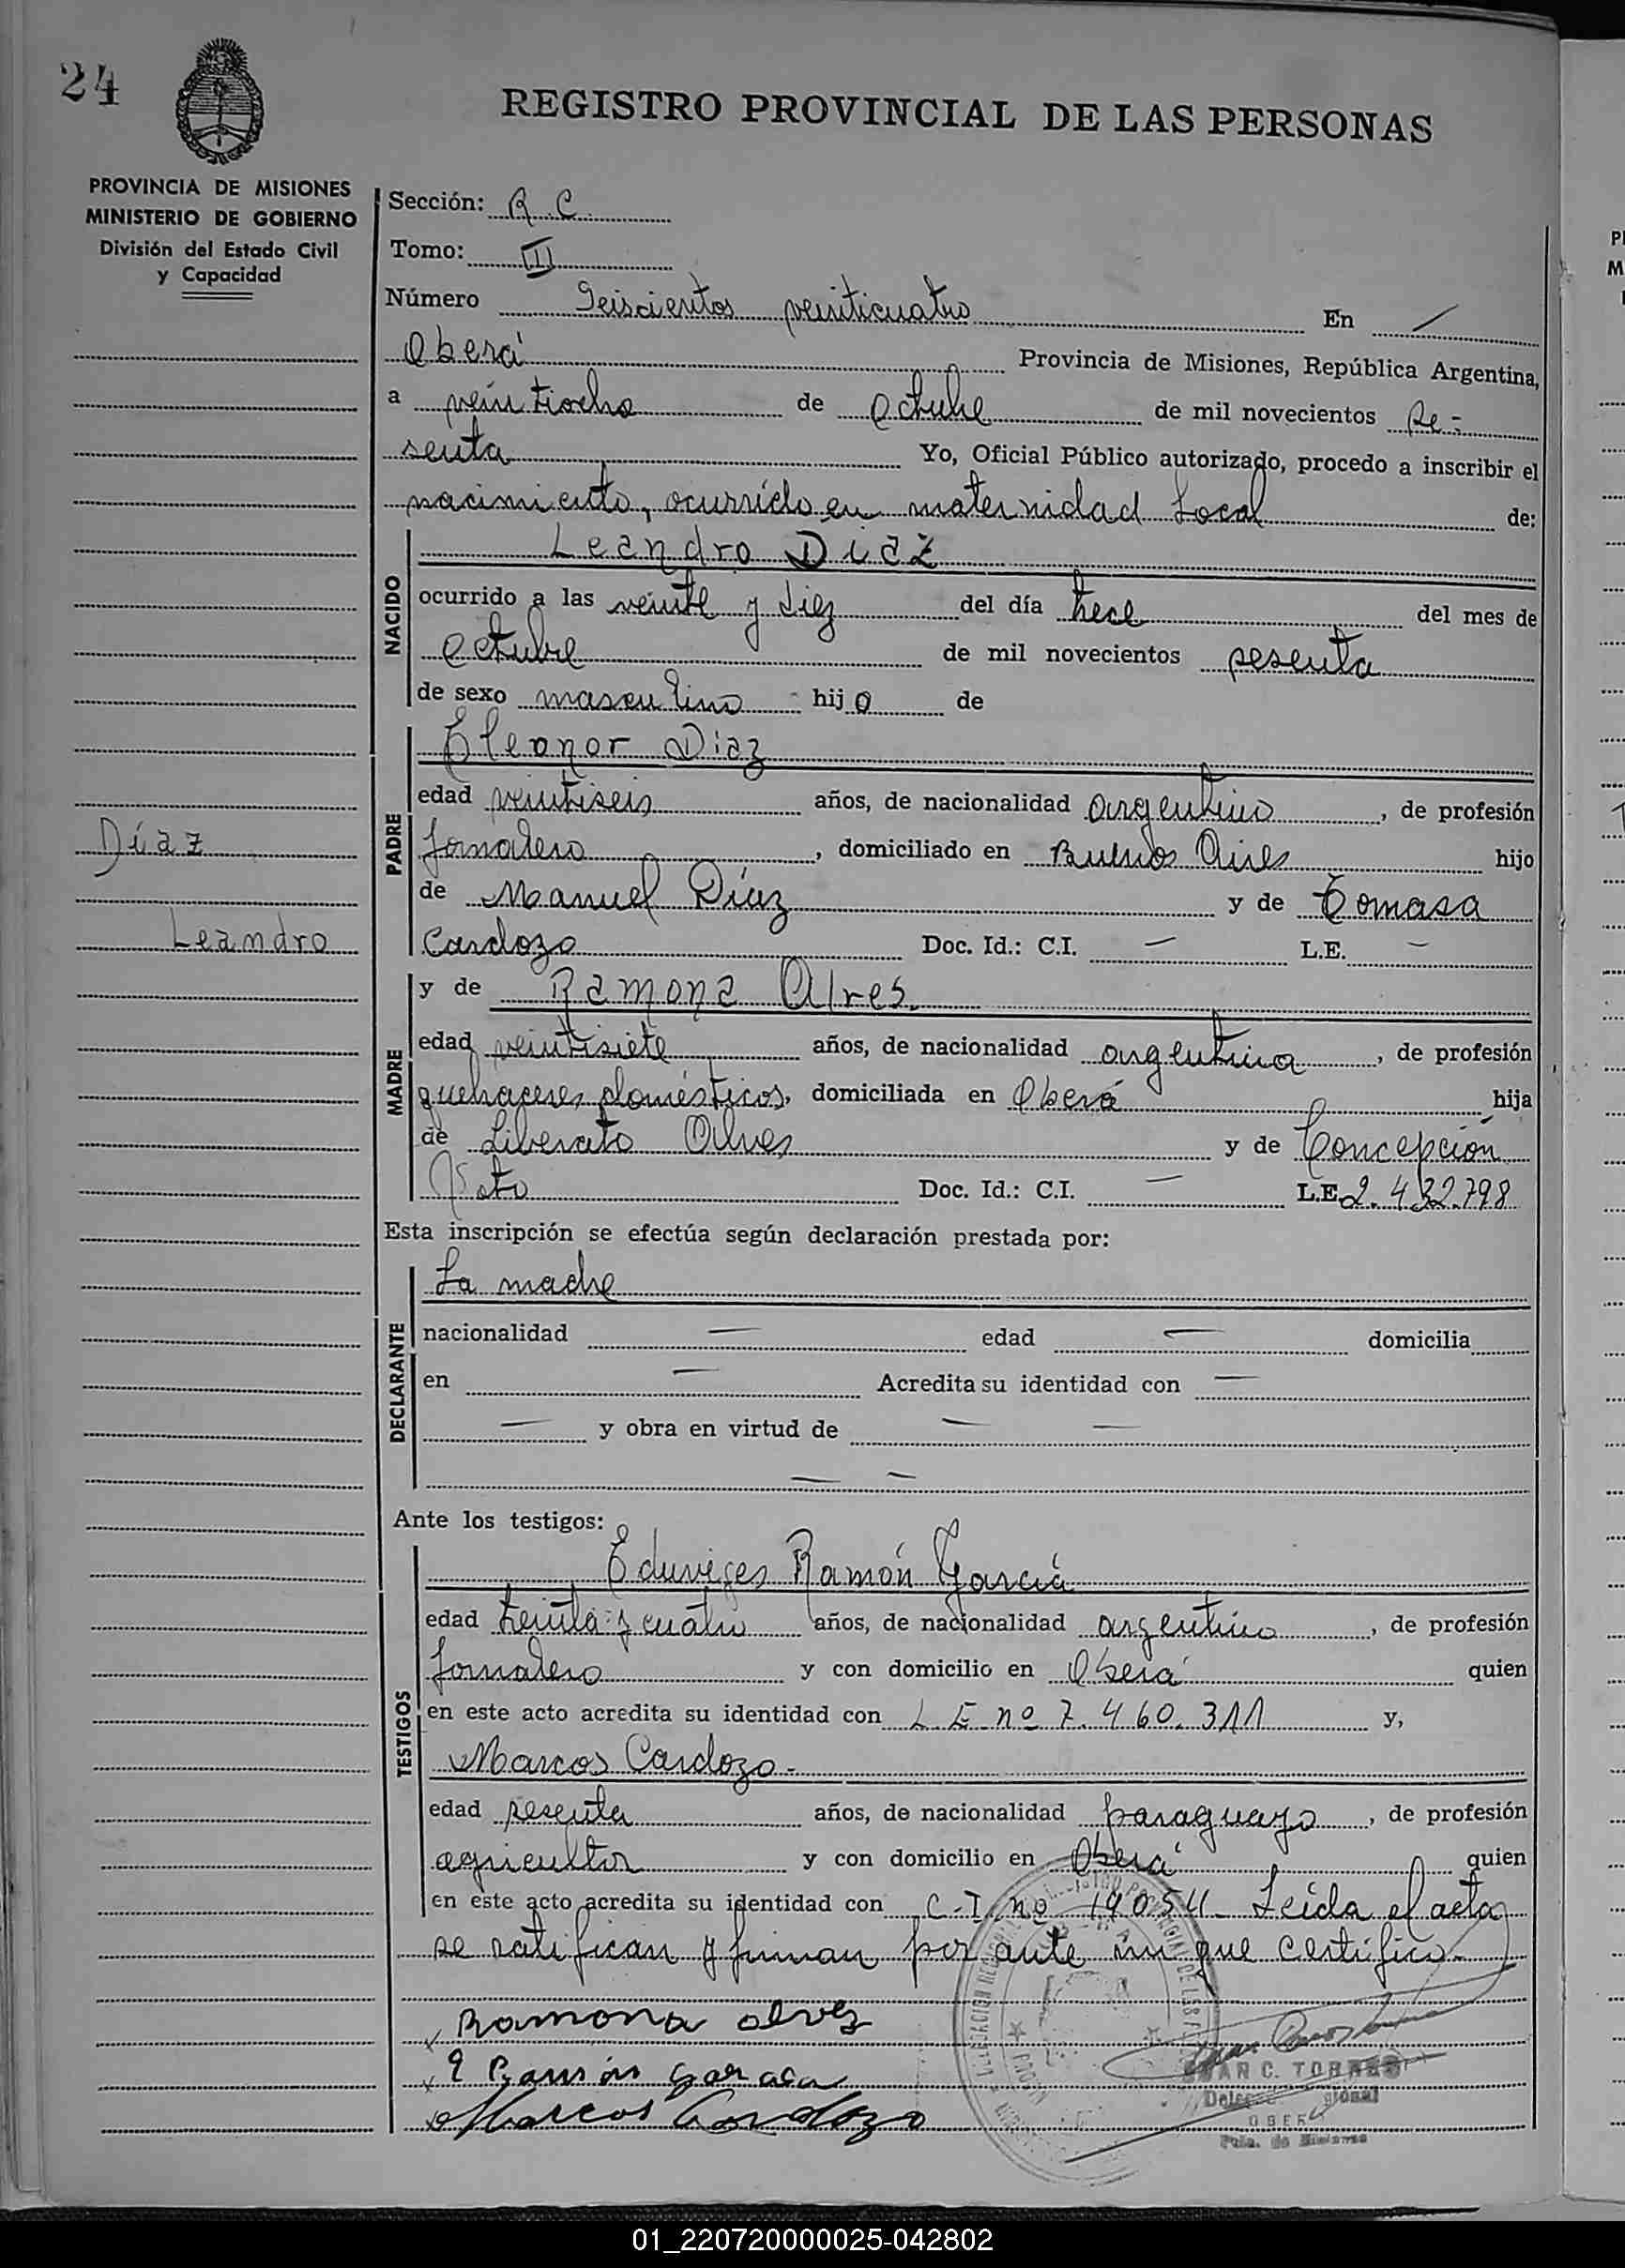 24
REGISTRO PROVINCIAL DE LAS PERSONAS
PROVINCIA DE MISIONES
MINISTERIO DE GOBIERNO
División del Estado Civil
y Capacidad
Sección: R.C.
Tomo: III
Número Seiscientos veinticuatro En
Oberá Provincia de Misiones, República Argentina,
a veintiocho de octubre de mil novecientos se-
senta Yo, Oficial Público autorizado, procedo a inscribir el
nacimiento, ocurrido en maternidad Local de:
NACIDO
Leandro Diaz
ocurrido a las veinte y diez del día trece del mes de
octubre de mil novecientos sesenta
de sexo masculino hijo de
PADRE
Eleonor Diaz
edad veintiseis años, de nacionalidad argentino, de profesión
Jornalero, domiciliado en Buenos Aires hijo
de Manuel Díaz y de Tomasa
Cardozo Doc. Id.: C.I. — L.E. —
Díaz
Leandro
MADRE
y de Ramona Alves
edad veintisiete años, de nacionalidad argentina, de profesión
quehaceres domésticos, domiciliada en Oberá hija
de Liberato Alves y de Concepción
Doc. Id.: C.I. — L.E. 2.432.798
Esta inscripción se efectúa según declaración prestada por:
DECLARANTE
La madre
nacionalidad — edad — domicilia
en — Acredita su identidad con —
— y obra en virtud de — —
— —
Ante los testigos:
TESTIGOS
Eduviges Ramón García
edad treinta y cuatro años, de nacionalidad argentino, de profesión
Jornalero y con domicilio en Oberá quien
en este acto acredita su identidad con L.E. nº 7.460.311 y,
Marcos Cardozo.-
edad sesenta años, de nacionalidad paraguayo, de profesión
agricultor y con domicilio en Oberá quien
en este acto acredita su identidad con C.I. nº Leída el acta
se ratifican y firman por ante mi que certifico.-
Ramona alvez
E Ramón Garcia
Marcos Cardozo
JUAN C. TORRES
OBERA
Pcia. de Misiones
01_220720000025-042802